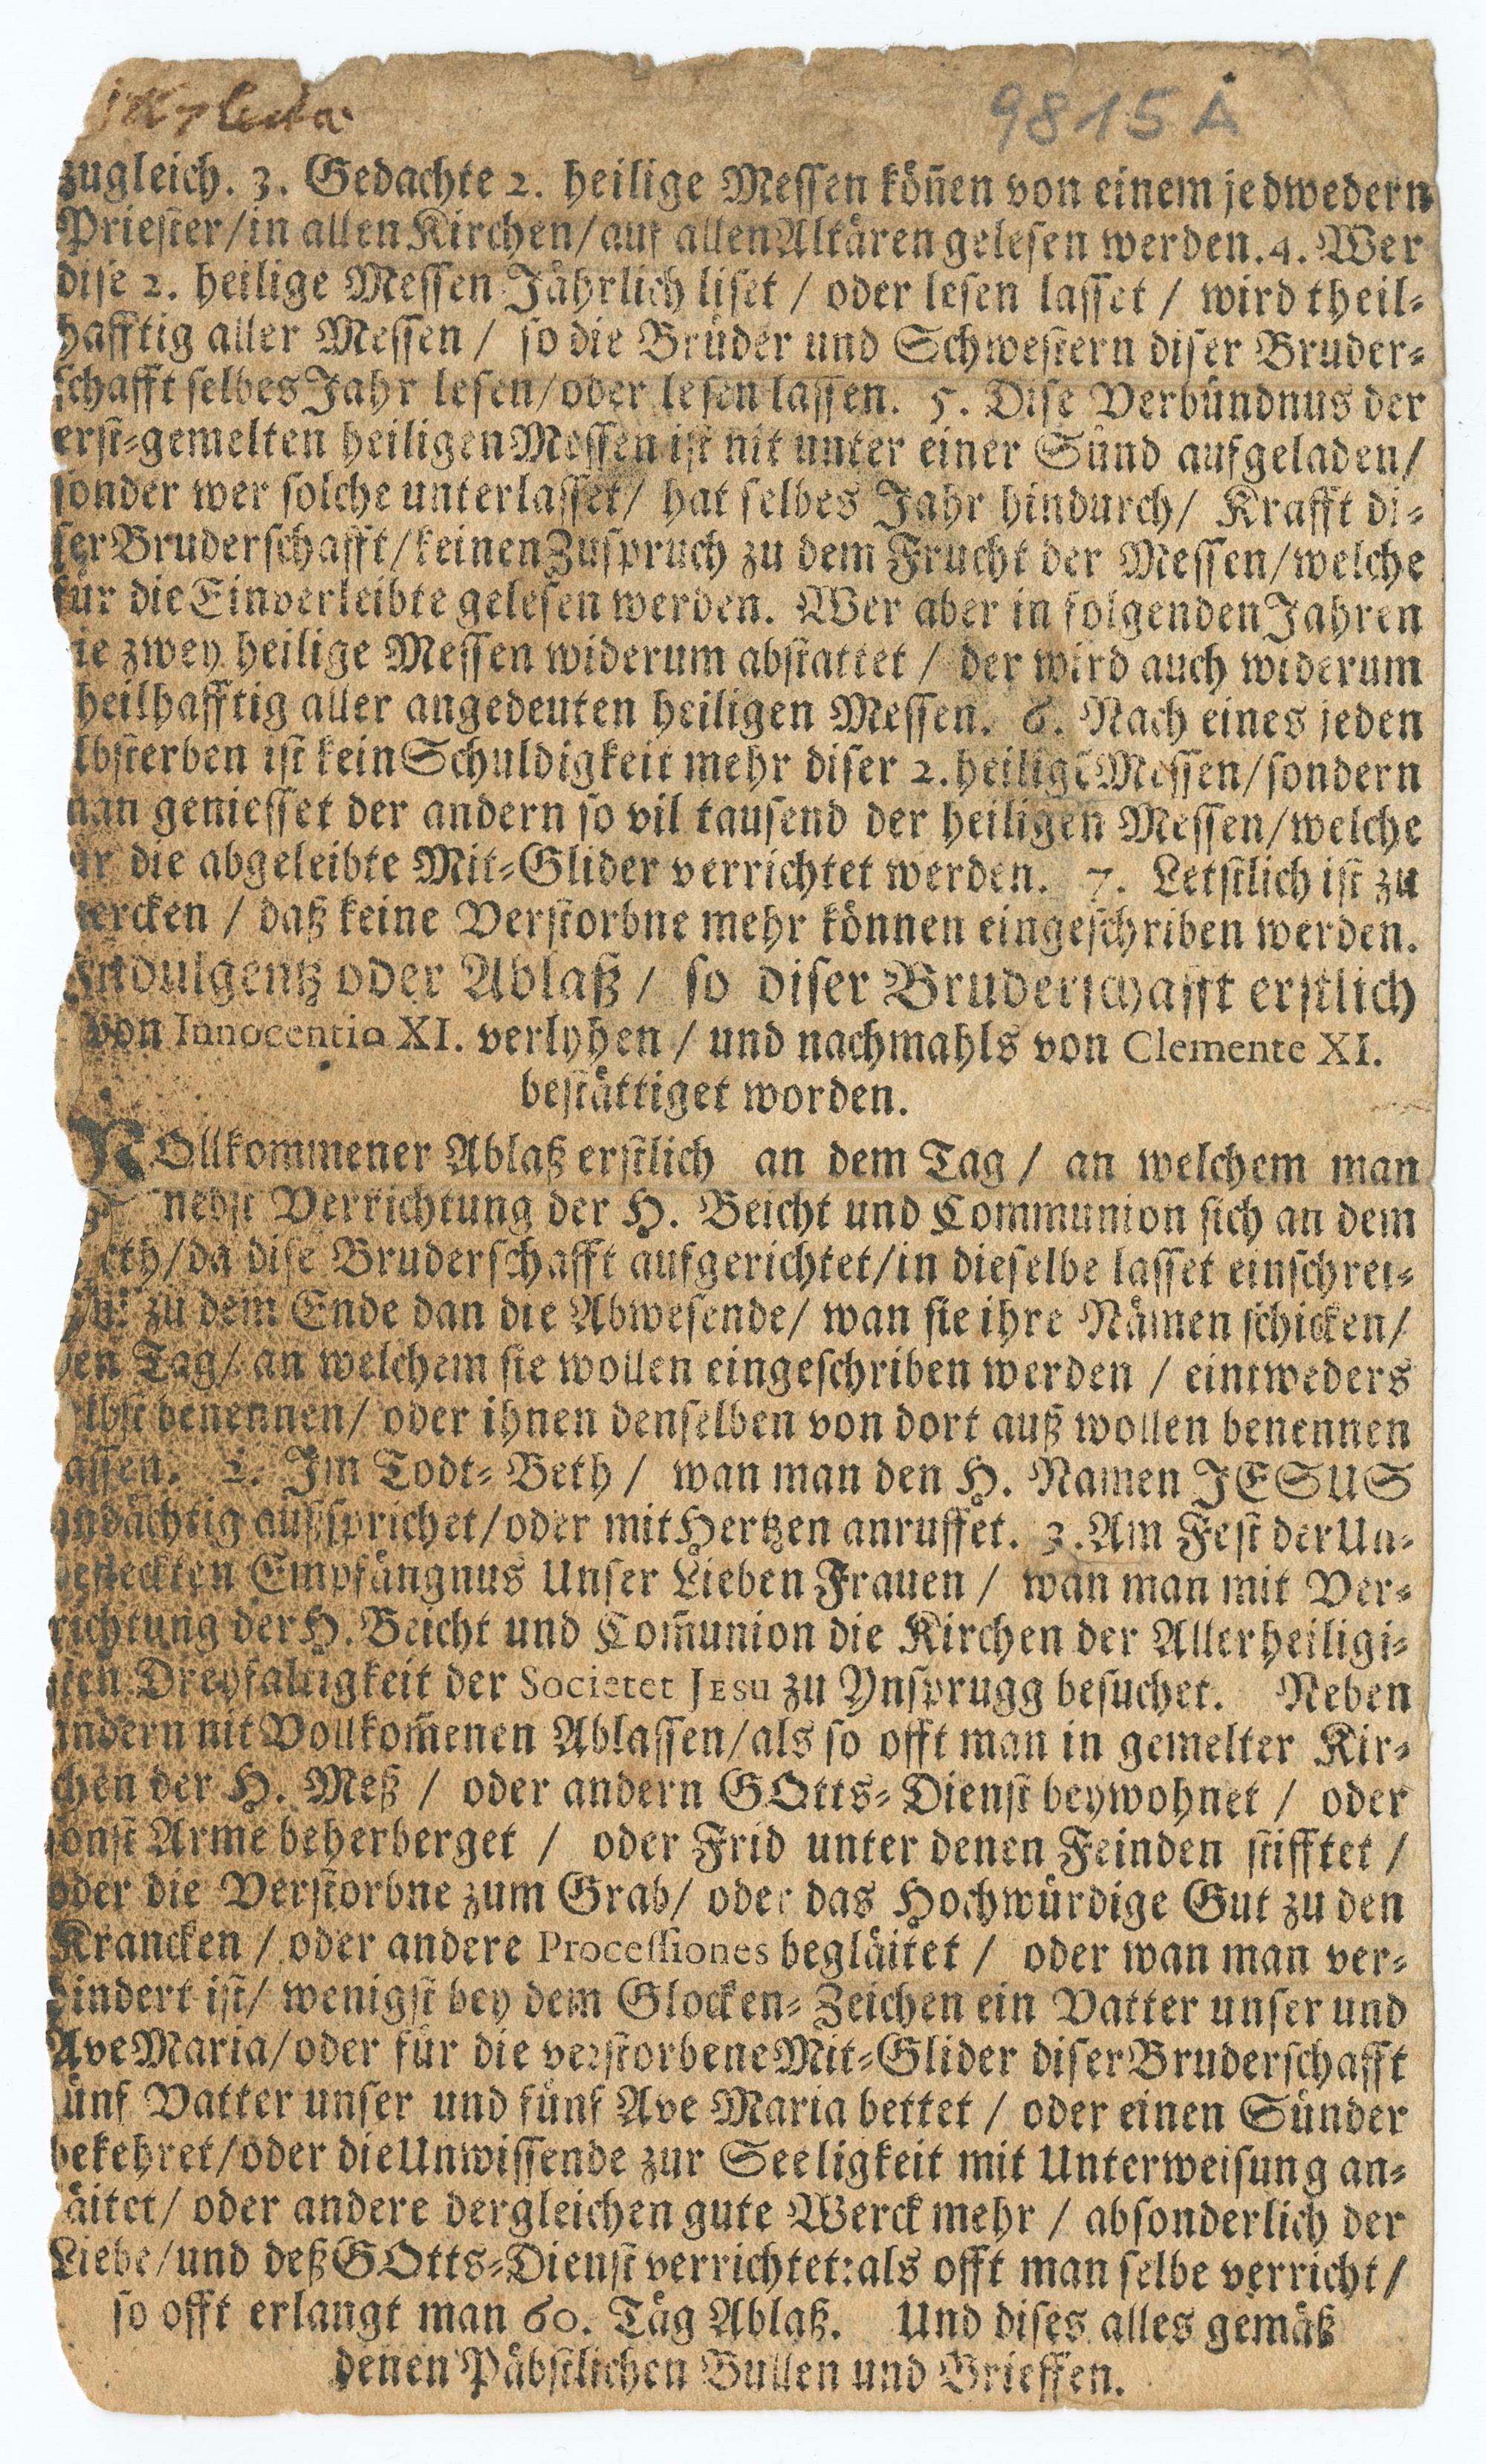 9815 A
zugleich. 3. Gedachte 2. heilige Messen köñen von einem jedwedern
Priester/in allen Kirchen/auf allen Altären gelesen werden. 4. Wer
dise 2. heilige Messen Jährlich liset / oder lesen lasset / wird theil-
hafftig aller Messen / so die Brüder und Schwestern diser Bruder-
schafft selbes Jahr lesen/oder lesen lassen. 5. Dise Verbündnus der
erst-gemelten heiligen Messen ist nit unter einer Sünd aufgeladen/
sonder wer solche unterlasset/ hat selbes Jahr hindurch/ Krafft di-
ser Bruderschafft/keinen Zuspruch zu dem Frucht der Messen/welche
für die Einverleibte gelesen werden. Wer aber in folgenden Jahren
ie zwey heilige Messen widerum abstattet / der wird auch widerum
heilhafftig aller angedeuten heiligen Messen. 6. Nach eines jeden
lbsterben ist kein Schuldigkeit mehr diser 2. heilige Messen/sondern
nan geniesset der andern so vil tausend der heiligen Messen/welche
ür die abgeleibte Mit-Glider verrichtet werden. 7. Letstlich ist zu
ercken / daß keine Verstorbne mehr können eingeschriben werden.
Indulgentz oder Ablaß / so diser Bruderschafft erstlich
von Innocentio XI. verlyhen / und nachmahls von Clemente XI.
bestättiget worden.
VOllkommener Ablaß erstlich an dem Tag / an welchem man
nebst Verrichtung der H. Beicht und Communion sich an dem
eth/da dise Bruderschafft aufgerichtet/in dieselbe lasset einschrei-
zu dem Ende dan die Abwesende/ wan sie ihre Nämen schicken/
en Tag/ an welchem sie wollen eingeschriben werden / eintweders
lbst benennen/ oder ihnen denselben von dort auß wollen benennen
assen. 2. Im Todt-Beth / wan man den H. Namen JESUS
andächtig außsprichet/oder mit Hertzen anruffet. 3. Am Fest der Un-
befleckten Empfängnus Unser Lieben Frauen / wan man mit Ver-
richtung der H. Beicht und Com̃union die Kirchen der Allerheiligi-
sten Dreyfaltigkeit der Societet JESU zu Ynsprugg besuchet. Neben
andern nit Vollkom̃enen Ablassen/als so offt man in gemelter Kir-
chen der H. Meß / oder andern GOtts-Dienst beywohnet / oder
sonst Arme beherberget / oder Frid unter denen Feinden stifftet /
oder die Verstorbne zum Grab/ oder das Hochwürdige Gut zu den
Krancken / oder andere Processiones begläitet / oder wan man ver-
hindert ist/ wenigst bey dem Glocken-Zeichen ein Vatter unser und
Ave Maria/oder für die verstorbene Mit-Glider diser Bruderschafft
ünf Vatter unser und fünf Ave Maria bettet / oder einen Sünder
bekehret/oder die Unwissende zur Seeligkeit mit Unterweisung an-
äitet/ oder andere dergleichen gute Werck mehr / absonderlich der
Liebe/und deß GOtts-Dienst verrichtet: als offt man selbe verricht/
so offt erlangt man 60. Täg Ablaß. Und dises alles gemäß
denen Päbstlichen Bullen und Brieffen.